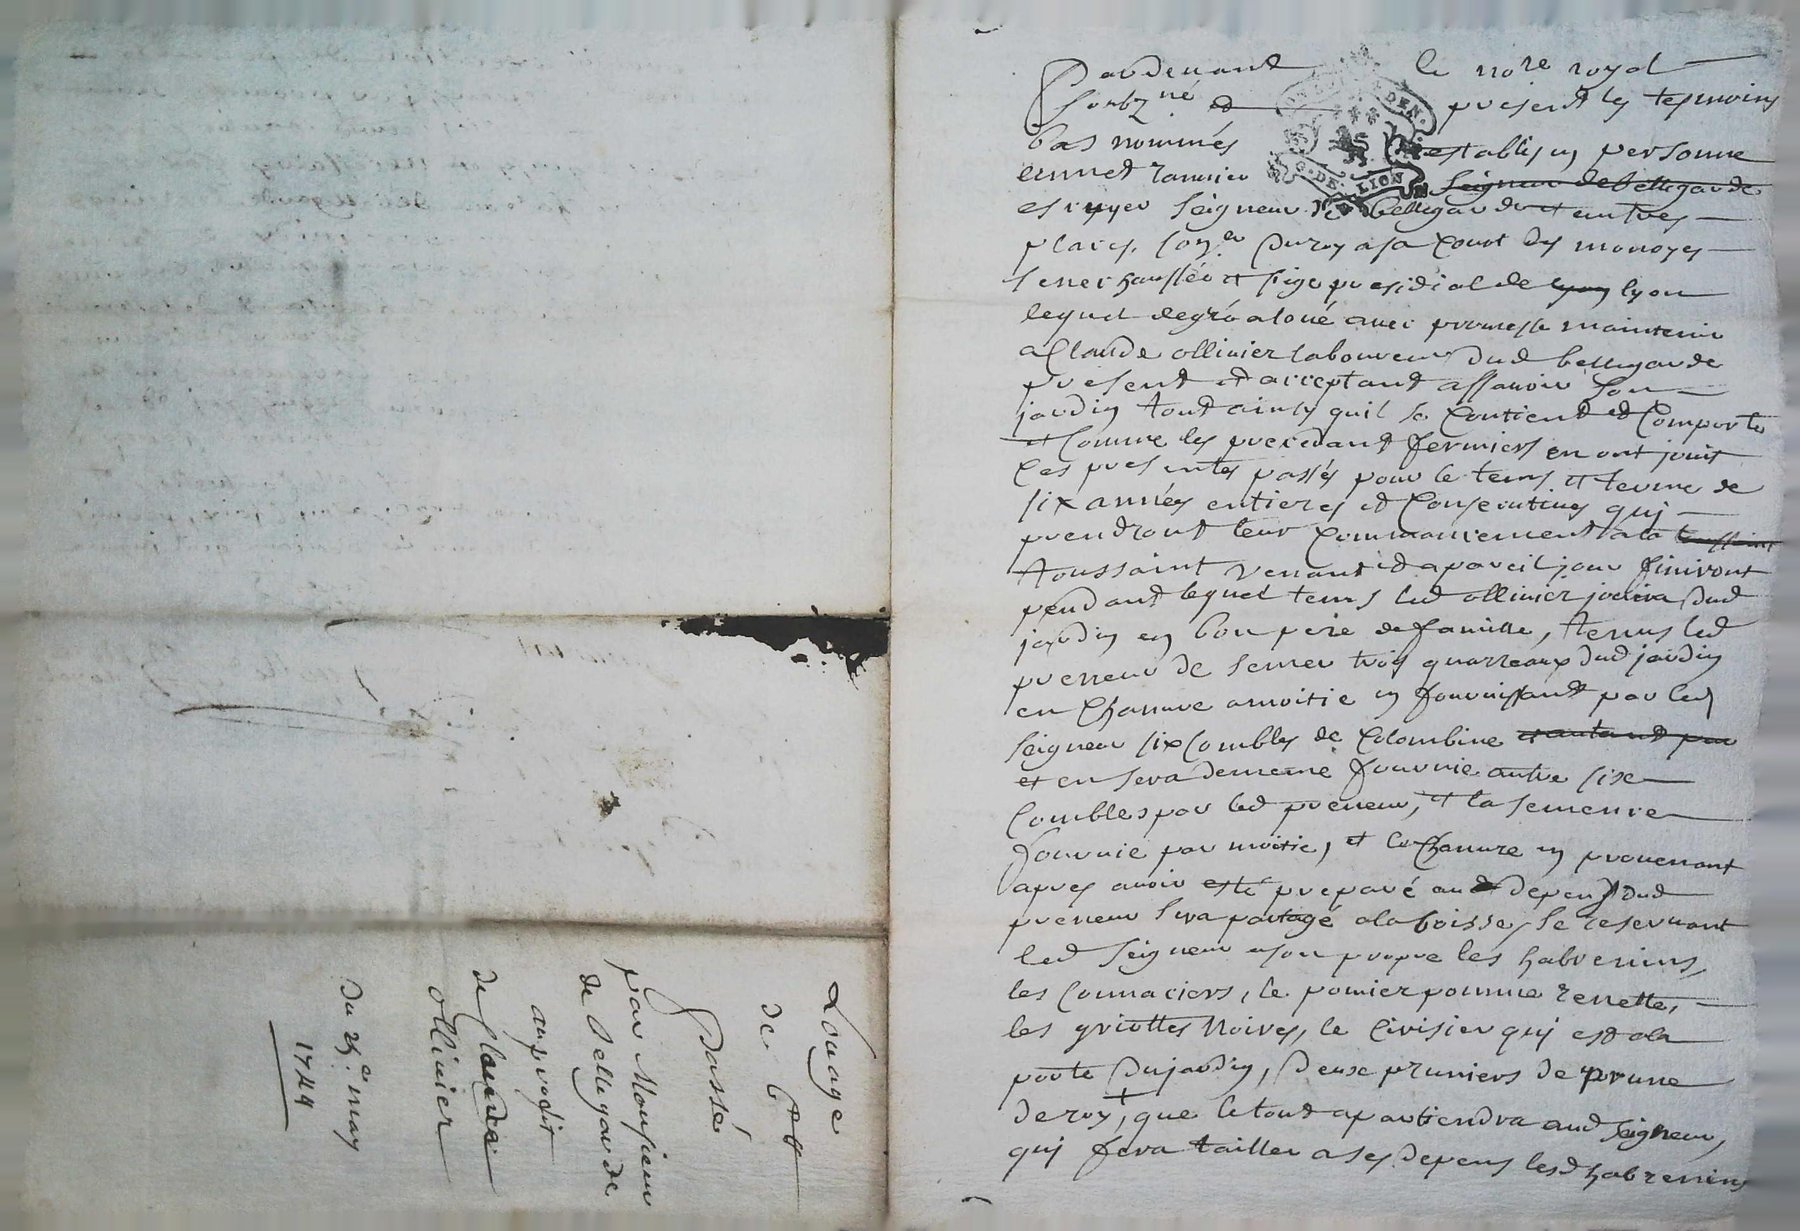 Pardevant le no.re royal
soubz.né et present les tesmoins
bas nommés establis en personne
ennet ranvier seigneur de bellegarde
escuyer seigneur de bellegarde et autres
places, con.er du roy a sa Cour des monoyes
senechaussée et siege presidial de lyon lyon
lequel de gré a loué avec promesse maintenir
a Claude ollivier laboureur dud bellegarde
present et acceptant assavoir son
jardin tout ainsy quil se Contient et Comporte
et Comme les precedant fermiers en ont jouit
Ces presentes passés pour le tems et terme de
six années entieres et Consecutives qui
prendront leur Commancement a la toussaint
toussaint venant et a pareil jour finiront
pendant lequel tems led ollivier joüira dud
jardin en bon pere de famille, tenus led
preneur de semer trois quarreaux dud jardin
en Chanvre a moitie en fournissant par led
seigneur six Combles de Colombine et autant par
et en sera de meme fournie autre six
Combles par led preneur, et la semence
fournie par moitie, et le Chanvre en provenant
apres avoir esté preparé au depens dud
preneur sera partagé a la boisse, se reservant
led seigneur en son propre les habrenins,
les Connaciers, le pomier pomme renette,
les griottes noires, le Cirisier qui est a la
porte du jardin, deux pruniers de prune
de roy +, que le tout apartiendra aud seigneur,
qui fera tailler a ses depens lesd habrenins
Louage
de 6 #
passé
par Monsieur
de Bellegarde
au profit
de Claude
ollivier
Du 25.e may
1744
DE LION